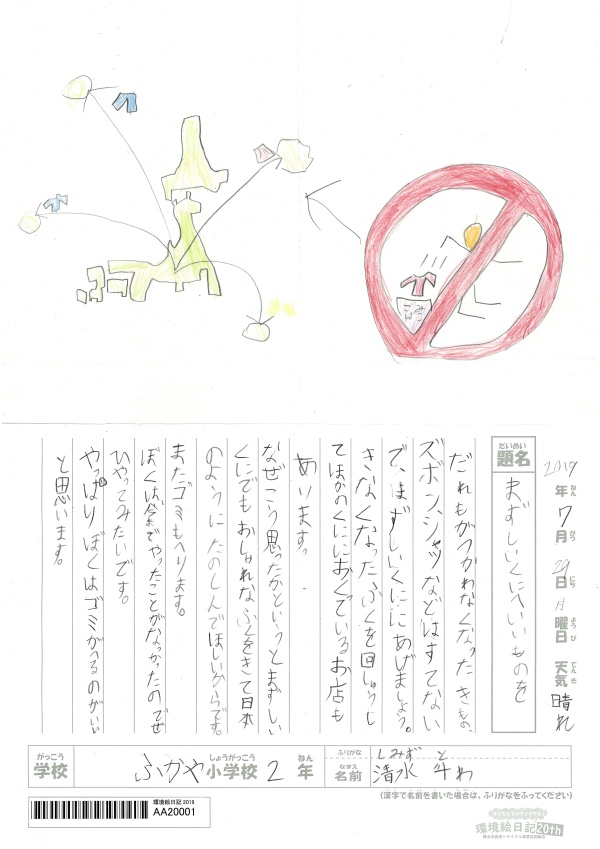 2019年ねん 7月がつ 29日にち 月曜日ようび 天気てんき 晴れ
だいめい
題名
まずしいくにへいいものを
だれもがつかわなくなったきもの、
ズボン、シャツなどはすてない
で、まずしいくににあげましょう。
きなくなったふくを回しゅうし
てほかのくににおくているお店も
あります。
なぜこう思ったかというとまずしい
くにでもおしゃれなふくをきて日本
のようにたのしんでほしいからです。
またゴミもへります。
ぼくは、今までやったことがなっかたのでぜ
ひやってみたいです。
やっぱりぼくはゴミがへるのがいい
と思います。
がっこう
学校
ふかや小学校しょうがっこう 2年ねん
ふりがな
しみず と
なまえ
名前
清水 斗わ
(漢字で名前を書いた場合は、ふりがなをふってください)
環境絵日記 2019
AA20001
環境絵日記20th